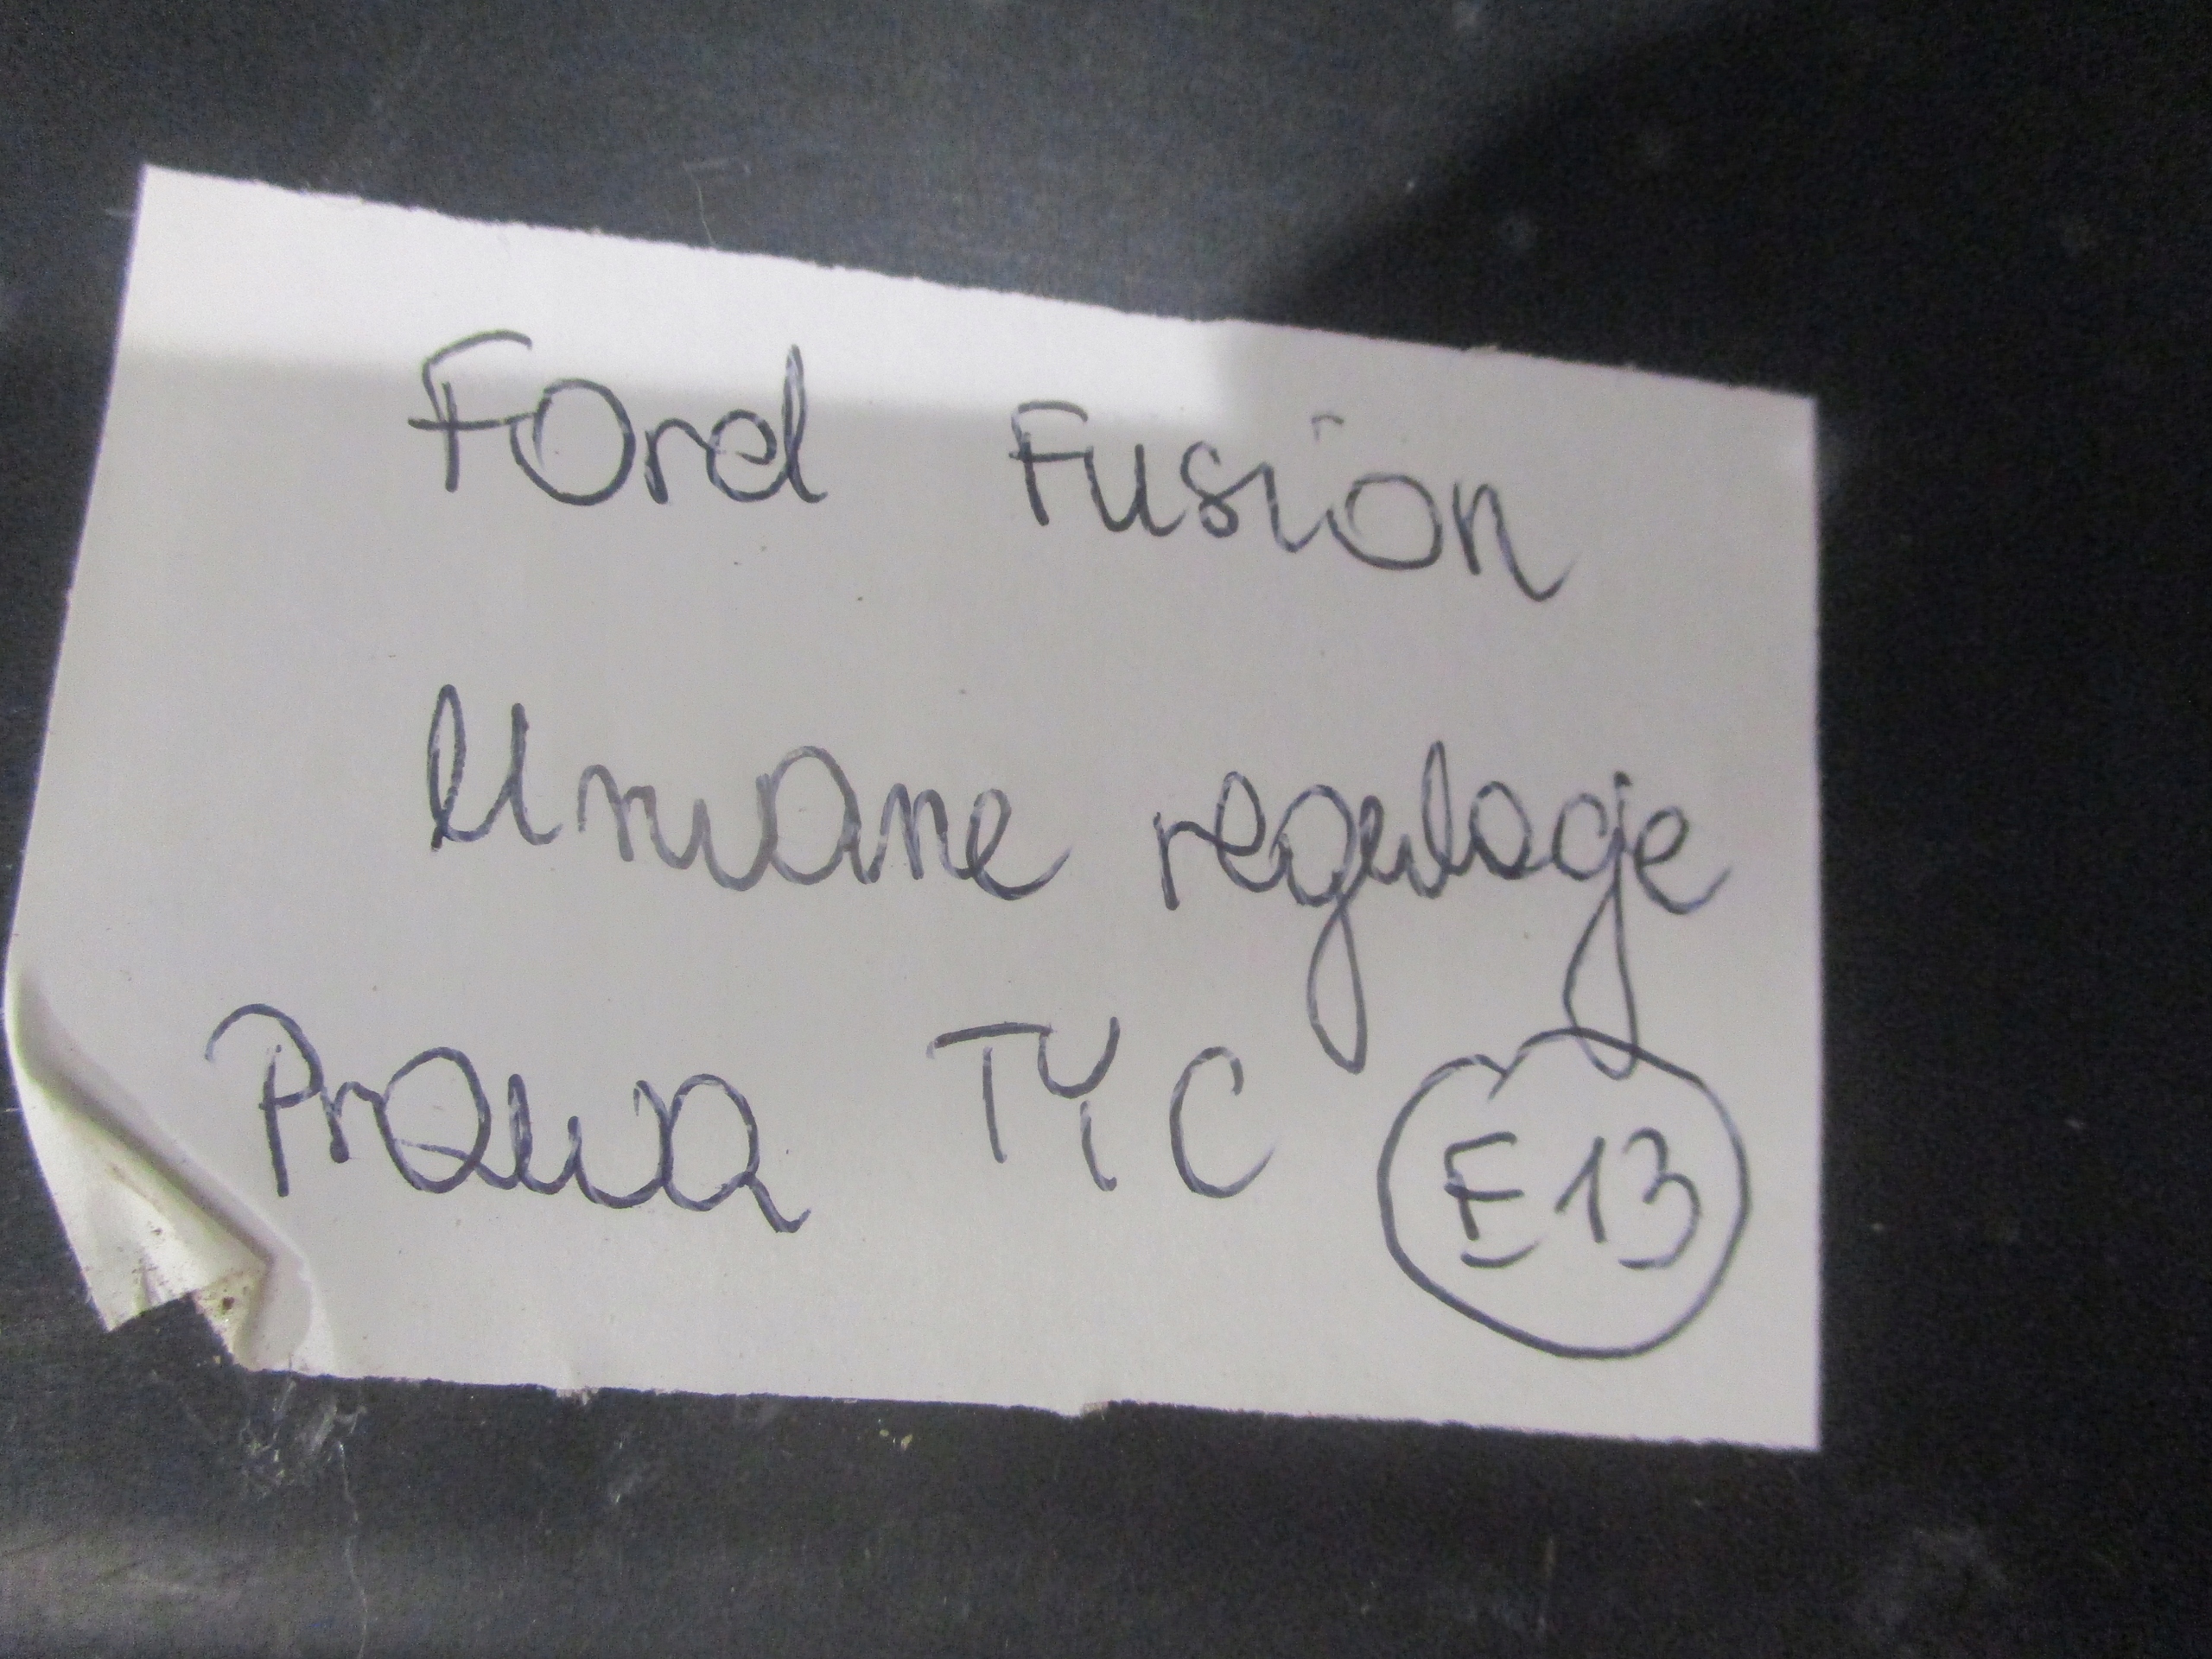 Ford Fusion
Urwane regulacje
Prawa TYC E13